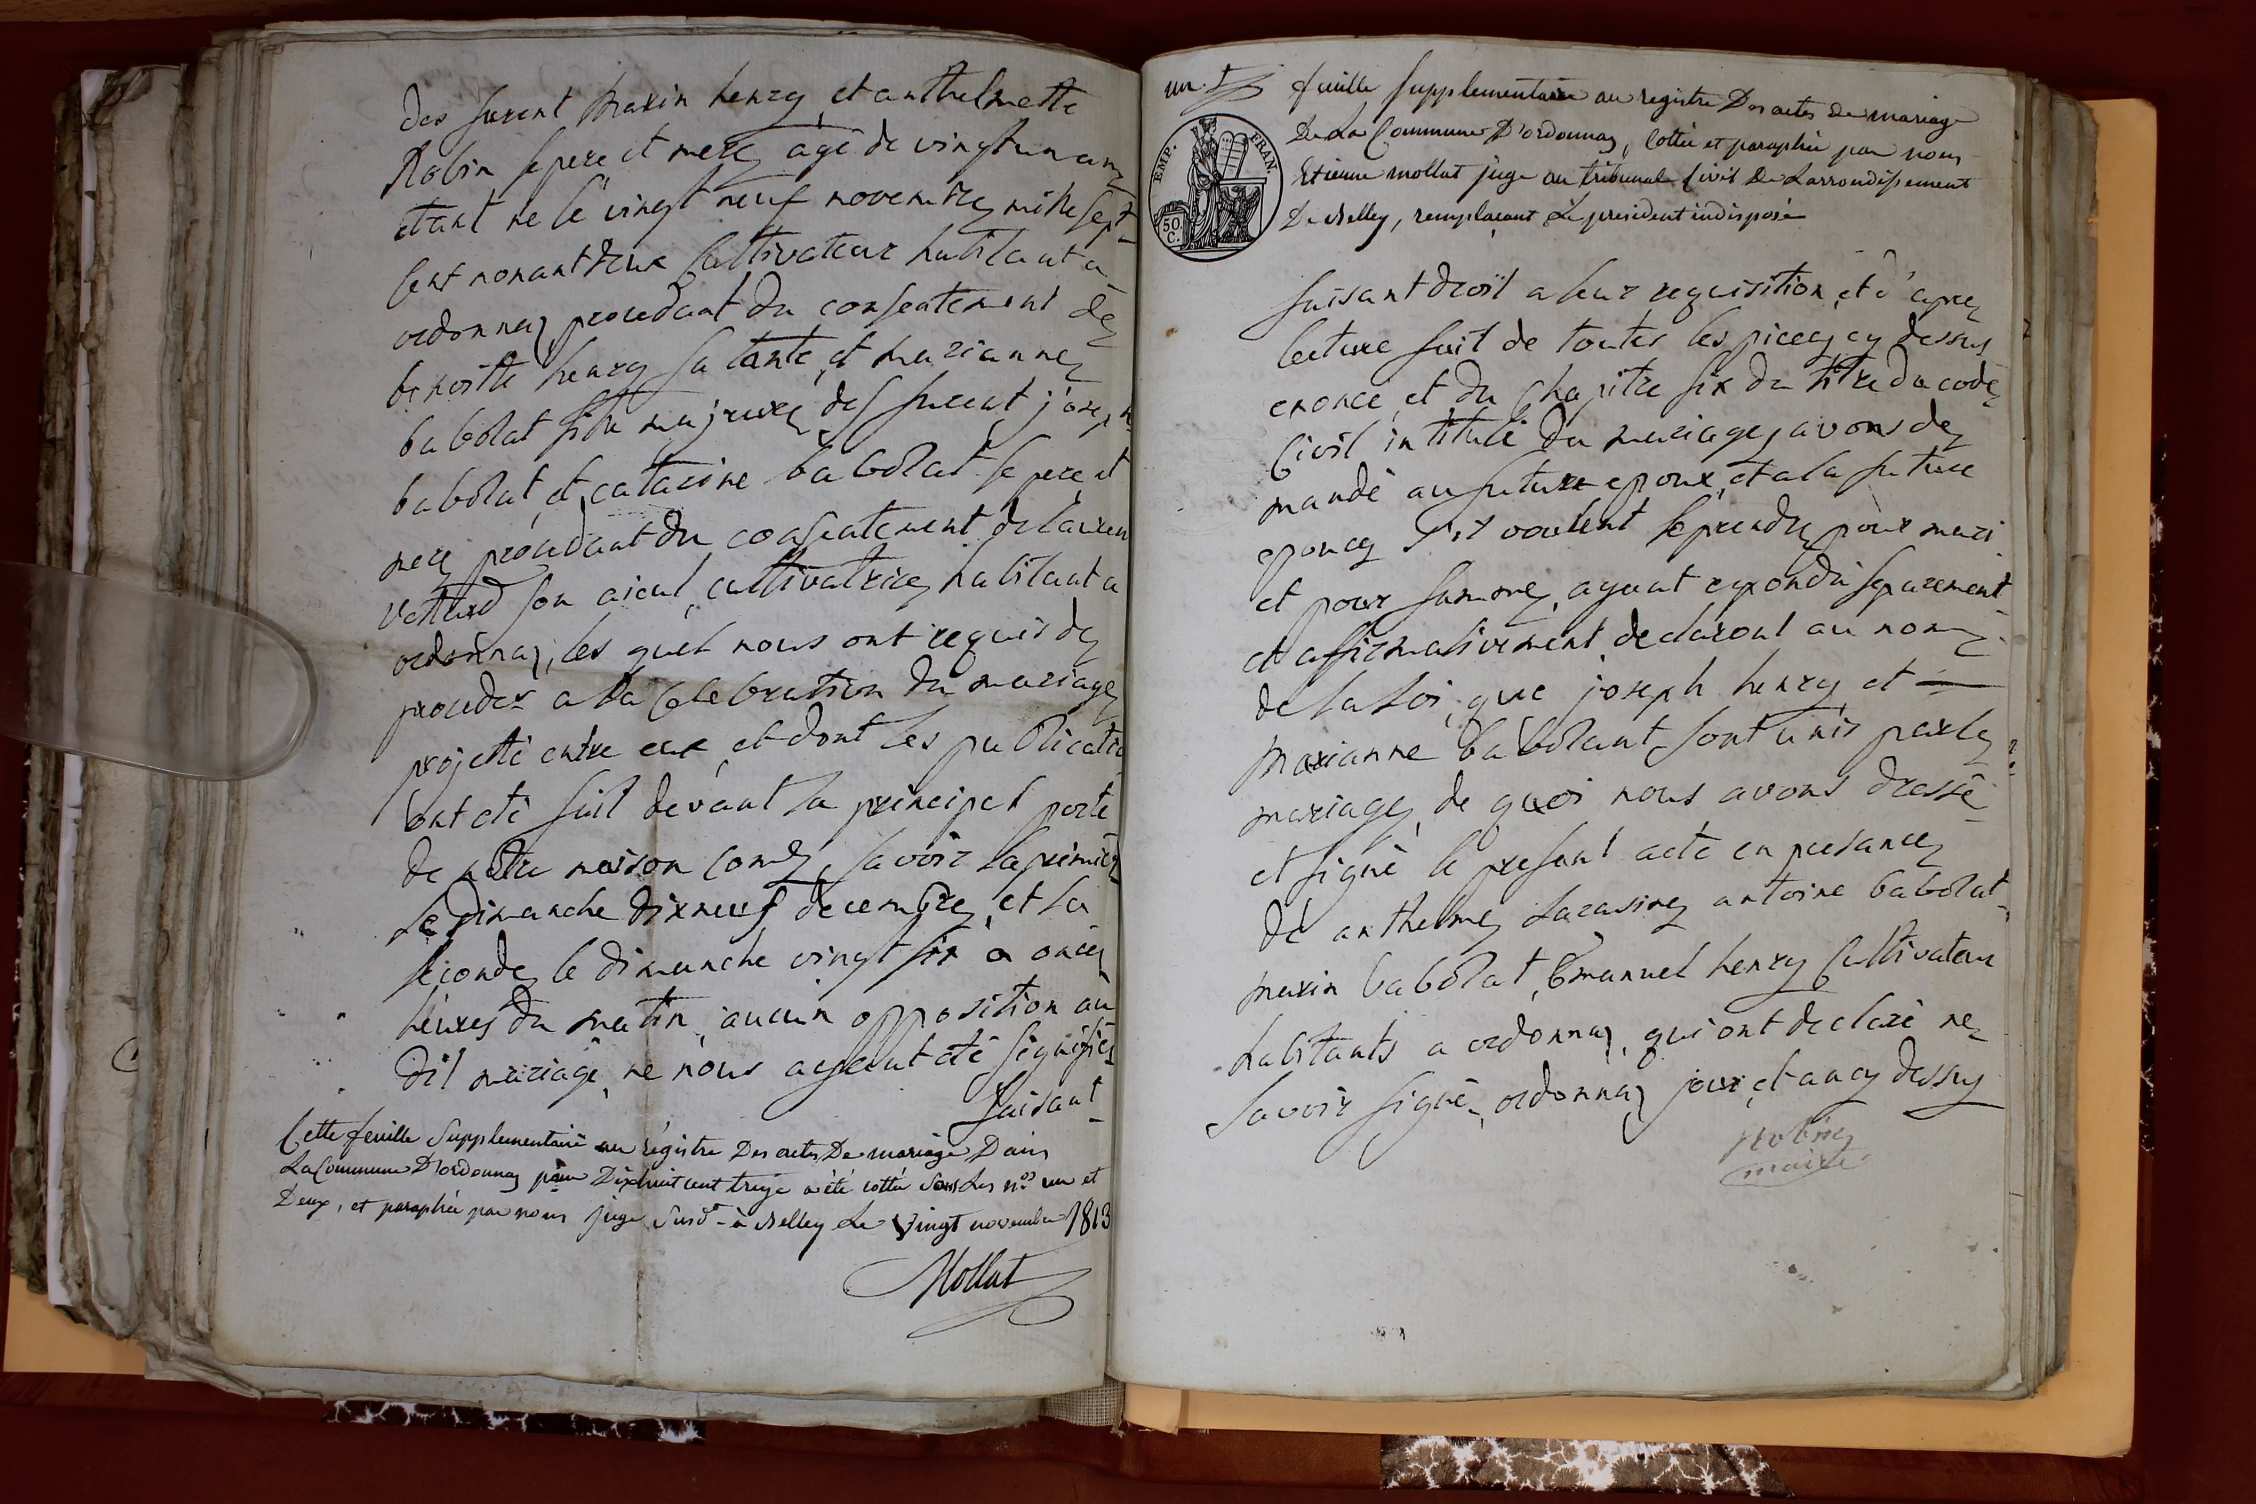 des furent Maxin henry, et anthelmette
Robin, se pere et mere, agé de vingt un ans
etant né le vingt neuf novembre mille sept
cent nonant deux Cultivateur habitant a
ordonnaz, procedant du consentement de
benoitte henry sa tante, et marianne
babolat fille majeure des furent joseph
babolat, et catarine babolat se pere et
mere procedant du consentement de laurent
vettard son aieul, cultivatrice habitant a
ordonnaz, les quel nous ont requis de
proceder a la Celebration du mariage
projetté entre eux, et dont les publicatio
ont eté fait devant la principal porte
de notre maison Come, savoir la premiere
le Dimanche dix neuf decembre, et la
seconde le dimanche vingt six a onze
heures du matin, aucun opposition au
dit mariage, ne nous ayant eté signifies
faisant
Cette feuille Supplementaire au régistre Des actes De mariage Dans
La Commune D'ordonnaz pour Dixhuit cent treize a été cottée Sous Les nos. un et
Deux, et paraphée par nous juge Susdt. à Belley Le Vingt novembre 1813
Mollat
un.
feuille Supplementaire au registre Des actes de mariage
De La Commune D'ordonnaz, Cottée et paraphée par nous
Etienne mollat juge au tribunal Civil De Larrondissement
De Belley, remplaçant Le president indisposé
EMP. FRAN.
50 C.
faisant droit a leur requisition, et d'apres
lecture fait de toutes les pieces cy dessus
enoncé, et du Chapitre six du titre du code
Civil intitulé du mariage, avons de
mandé au futur epoux, et a la future
epouce s'il veulent se prendre pour mari
et pour femme, ayant repondu separement
et affirmativement, declaront au nom
de la loi, que joseph henry et
marianne babolant sont unis par le
mariage, de quoi nous avons dressé
et signé le present acte en presance
de anthelme Sarasin antoine babolat
maxin babolat, Emanuel henry Cultivateur
habitants a ordonnaz, qui ont declaré ne
savoir signé, ordonnaz jour, et an cy dessus
Robin
maire